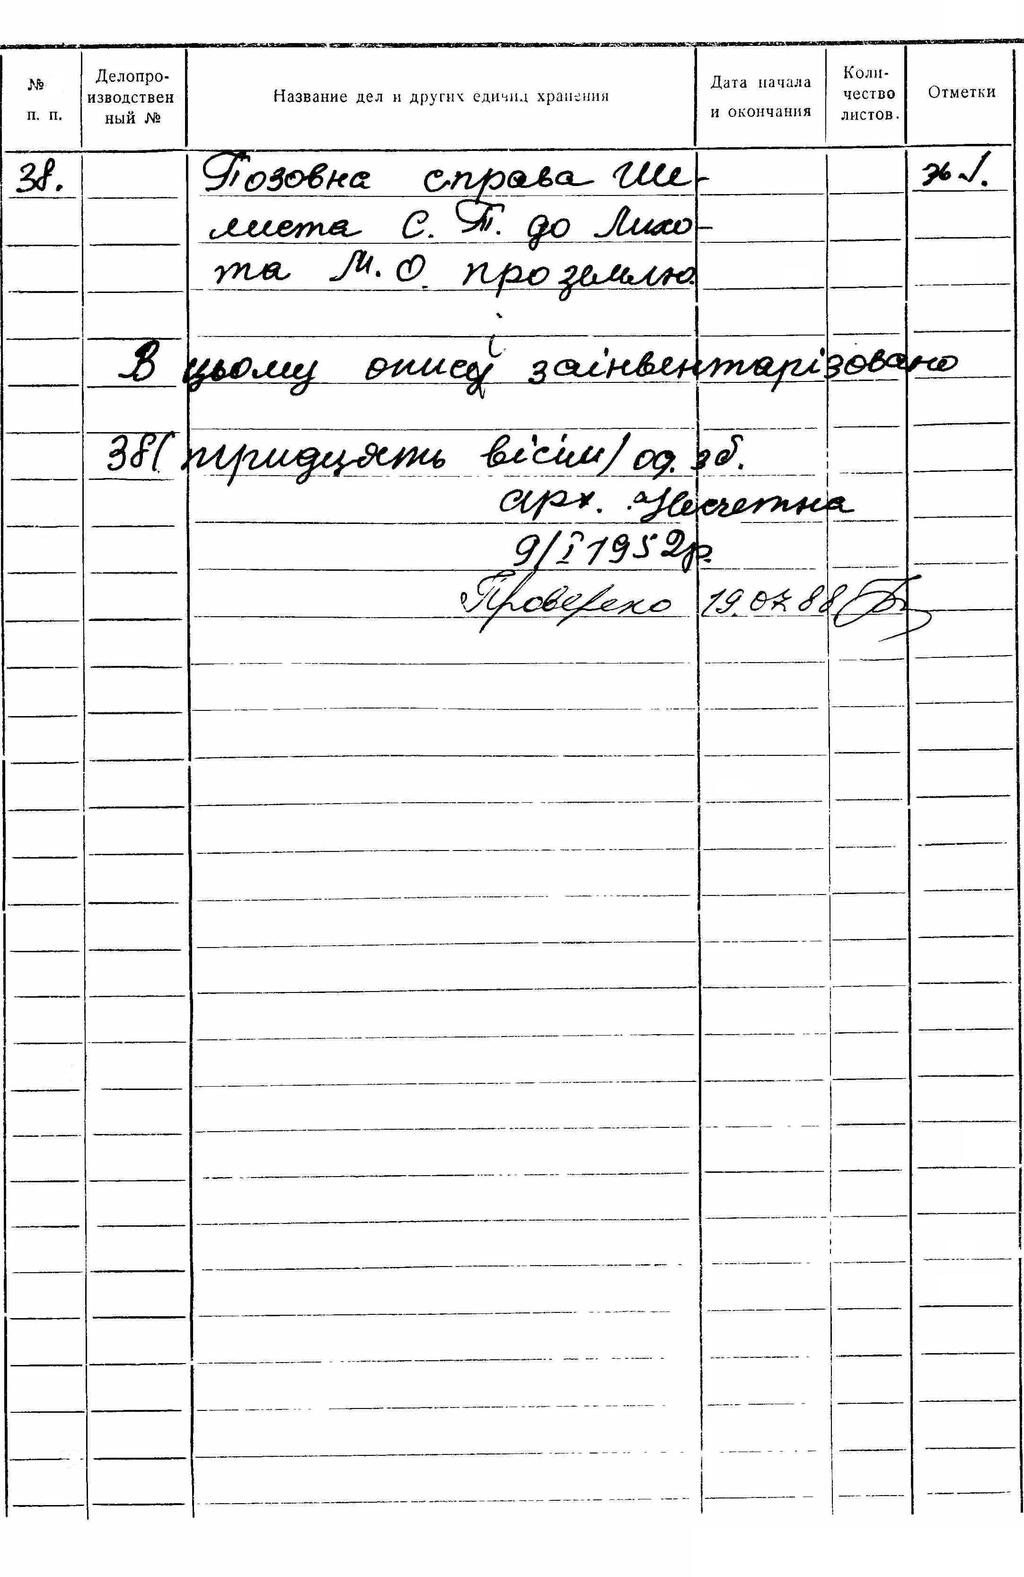 № п. п.
Делопро-
изводствен
ный №
Название дел и других единиц хранения
Дата начала
и окончания
Коли-
чество
листов.
Отметки
38. Позовна справа Ше-
мета С. П. до Лихо-
та М. О. про землю.
В цьому описі заінвентарізовано
38 (тридцять вісім) од. зб.
арх. Несчетна
9/I 1952р.
Проверено 19.07.88